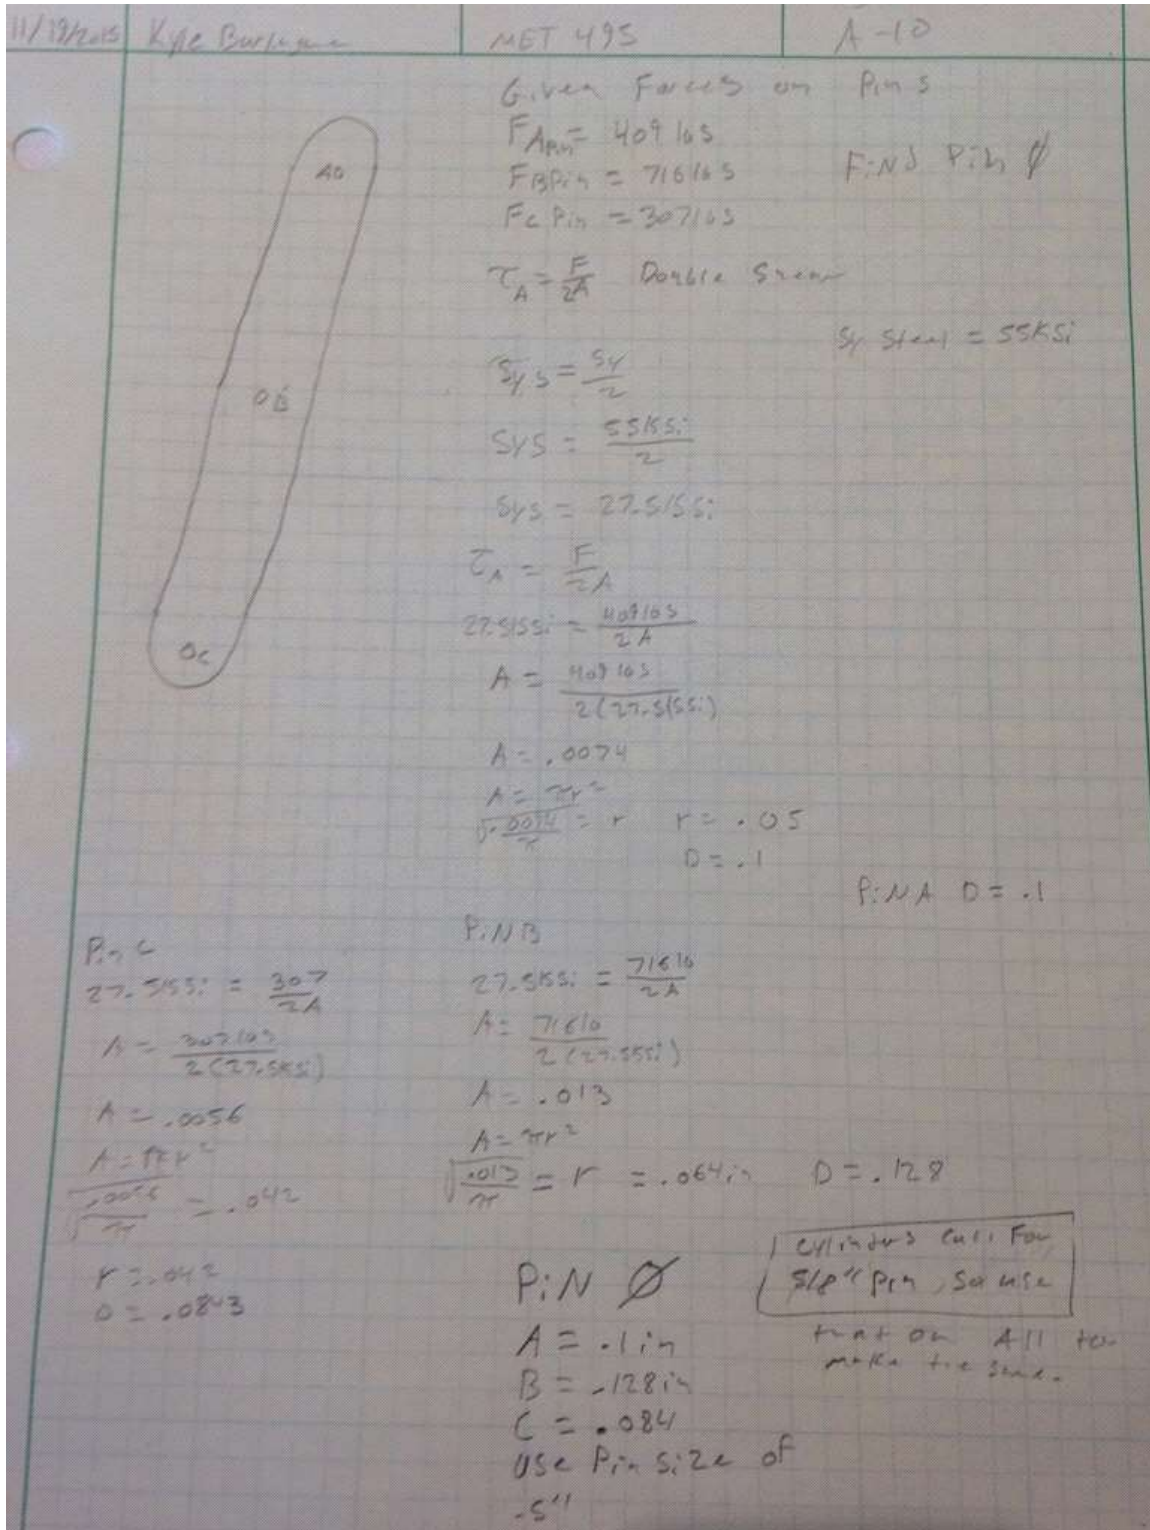 11/19/2015 Kyle MET 495 A-10
Given Forces on Pins
F A pin = 409 lbs
F B Pin = 716 lbs
F C Pin = 307 lbs
Find Pin Ø
AO
OB
OC
τ_A = F/2A Double Shear
Sy Steel = 55 KSi
Sys = Sy/2
Sys = 55KSi/2
Sys = 27.5 KSi
τ_A = F/2A
27.5KSi = 409 lbs/2A
A = 409 lbs/2(27.5KSi)
A = .0074
A = πr²
√(.0074/π) = r r = .05
D = .1
PiN A D = .1
Pin C
27.5KSi = 307/2A
A = 307 lbs/2(27.5KSi)
A = .0056
A = πr²
√(.0056/π) = .042
r = .042
D = .0843
PiN B
27.5KSi = 716 lb/2A
A = 716 lb/2(27.5KSi)
A = .013
A = πr²
√(.013/π) = r = .064in D = .128
PiN Ø
A = .1in
B = .128in
C = .084
Use Pin size of
.5"
Cylinders Call For
5/8" Pin, so use
that on All to
make the same.